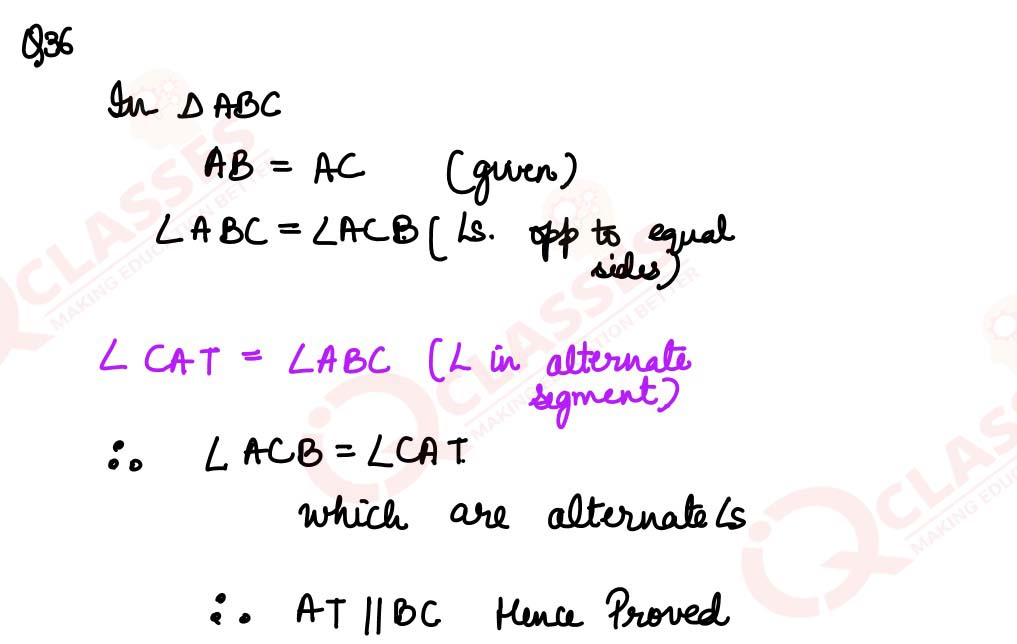 Q36
In Δ ABC
AB = AC (given)
∠ABC = ∠ACB (∠s. opp to equal
sides)
∠CAT = ∠ABC (∠ in alternate
segment)
∴ ∠ACB = ∠CAT
which are alternate ∠s
∴ AT || BC Hence Proved
CLASSES
MAKING EDUCATION BETTER
IQ CLASSES
MAKING EDUCATION BETTER
IQ CLAS
MAKING EDUC